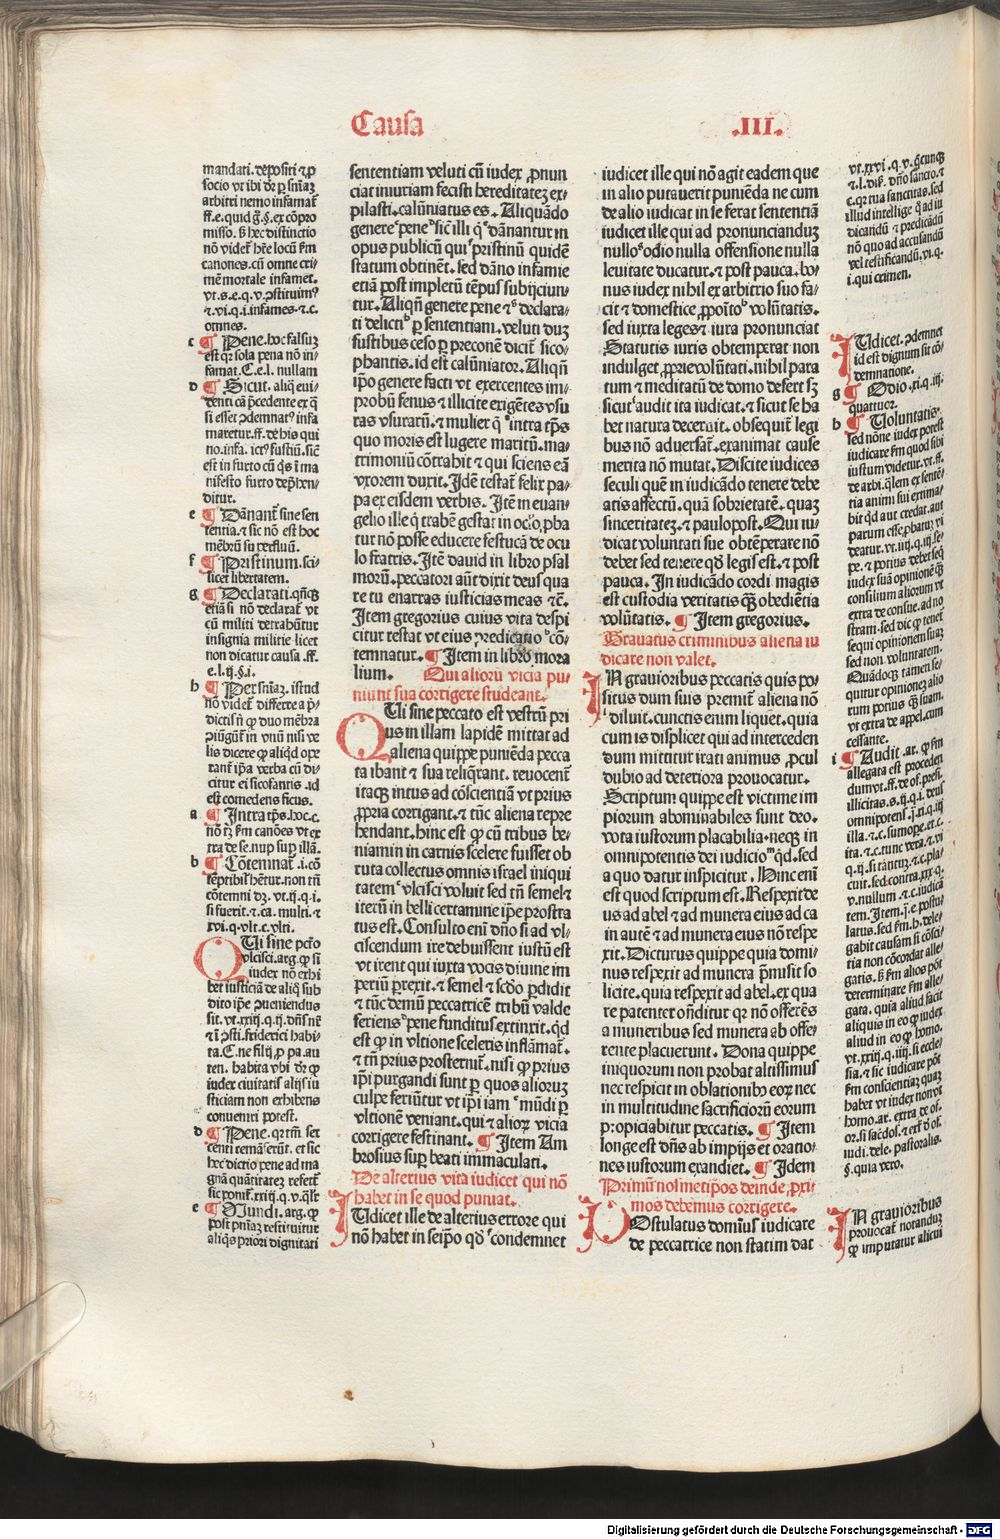 Causa
.III.
mandati. depositi ⁊ ꝓ
socio vt ibi de ꝑ sniaꝫ
arbitri nemo infamat᷑
misso. ß hec distinctio
canones. cū omne cri-
mē mortale infamet.
vt .s. e. q. v. ꝯstituim⁹
⁊ vi. q. i. infames. ⁊ c.
omnes.
c ¶ Pene. hoc falsuꝫ
est qꝛ sola pena nō in-
famat. C. e. l. nullam
d ¶ Sicut. aliq̄ eui-
denti cā p̄cedente ex q̄
si esset ꝯdemnat⁹ infa
maretur. ff. de his qui
no. infa. ict⁹ fustiū. sic̄
est in furto cū q̄s ī ma
nifesto furto dep̄hen-
ditur.
e ¶ Dānant᷑ sine sen
tentia. ⁊ sic nō est hoc
mēbrū suꝑfluū.
f ¶ Pristinum. sci-
licet libertatem.
g ¶ Declarati. qn̄qꝫ
etiā si nō declarat᷑ vt
cū militi detrahūtur
insignia militie licet
non dicatur causa. ff.
e. l. ij. §. i.
h ¶ Per sniaꝫ. istud
nō videt᷑ differre a p̄-
dictis ꝙ duo mēbra
ꝯiūgūt᷑ in vnū nisi ve
lis dicere ꝙ aliqd ope
rant᷑ ip̄a verba cū di-
citur ei sicofantis. id
est comedens ficus.
a ¶ Intra tp̄s. hoc. c.
nō tꝫ ẜm canōes vt ex
tra de se. nup suꝑ illā.
b ¶ Cōtemnat᷑. i. cō
cōtemni dꝫ. vt. ij. q. i.
si fuerit. ⁊. ca. multi. ⁊
xvi. q. vlt. c. vlti.
Qui sine pctō
vlcisci. arg. ꝙ si
iudex nō exhi
bet iusticiā de aliq̄ sub
dito ip̄e ꝯueniendus
ta. C. ne fili⁹ ꝓ pa. au
ten. habita vbi dꝛ ꝙ
iudex ciuitatis alijs iu
sticiam non exhibens
conueniri potest.
d ¶ Pene. qꝛ tm̄ ser
hec dictio pene ad ma
gnā quātitateꝫ refert᷑
e ¶ Mundi. arg. ꝙ
post pn̄iaꝫ restituitur
aliq̄s priori dignitati
sententiam veluti cū iudex ꝓnun
ciat iniuriam fecisti hereditateꝫ ex-
pilasti. calūniatus es. Aliquādo
genere ᵉpene ᵈsic̄ illi q̄ ᵉdānantur in
opus publicū qui ᶠpristinū quidē
statum obtinēt. sed dāno infamie
etiā post impletū tēpus subijciun-
tur. Aliqn̄ genere pene ⁊ ᵍdeclara-
ti delicti ʰꝑ sententiam. veluti duꝫ
fustibus ceso ꝑ preconē dicit᷑ sico-
phantis. id est calūniator. Aliqn̄
ip̄o genere facti vt exercentes im-
probū fenus ⁊ illicite exigētes vsu
ras vsurarū. ⁊ mulier q̄ ᵃintra tp̄s
quo moris est lugere maritū. ma-
trimoniū cōtrahit ⁊ qui sciens eā
vxorem duxit. Idē testat᷑ felix pa-
pa ex eisdem verbis. Itē in euan-
gelio ille q̄ trabē gestat in oc̄o. pba
tur nō posse educere festucā de ocu
lo fratris. Itē dauid in libro psal
morū. peccatori aūt dixit deus qua
re tu enarras iusticias meas ⁊c̄.
Item gregorius cuius vita despi
citur restat vt eius predicatio ᵇcō-
temnatur. ¶ Item in libro mora
lium. Qui alioꝝ vicia pu-
niunt sua corrigere studeant.
Qui sine peccato est vestrū pri
us in illam lapidē mittat ad
aliena quippe puniēda pecca
ta ibant ⁊ sua reliq̄rant. reuocent᷑
itaqꝫ intus ad cōscientiā vt prius
ꝓpria corrigant. ⁊ tūc aliena repre
hendant. hinc est ꝙ cū tribus be-
niamin in carnis scelere fuisset ob
ruta collectus omnis israel iniqui
tatem ᶜvlcisci voluit sed tn̄ semel ⁊
iterū in belli certamine ip̄e prostra
tus est. Consulto eni dn̄o si ad vl-
ciscendum ire debuissent iustū est
vt irent qui iuxta vocis diuine im
periū perexit. ⁊ semel ⁊ scd̄o ꝑdidit
⁊ tūc demū peccatricē tribū valde
feriens ᵈpene funditus extinxit. qd
est ꝙ in vltione sceleris inflāmat᷑.
⁊ tn̄ prius prosternit᷑. nisi ꝙ prius
ip̄i purgandi sunt ꝑ quos alioꝝ
culpe feriūtur vt ip̄i iam ᵉmūdi ꝑ
vltionē veniant. qui ⁊ alioꝝ vicia
corrigere festinant. ¶ Item Am
brosius suꝑ beati immaculati.
De alterius vita iudicet qui nō
habet in se quod puniat.
Iudicet ille de alterius errore qui
nō habet in seip̄o qd ᶠcondemnet
iudicet ille qui nō agit eadem que
in alio putauerit puniēda ne cum
de alio iudicat in se ferat sententiā
iudicet ille qui ad pronuncianduꝫ
nullo ᵍodio nulla offensione nulla
leuitate ducatur. ⁊ post pauca. bo-
nus iudex nihil ex arbitrio suo fa-
cit ⁊ domestice ꝓpoīto ʰvolūtatis.
sed iuxta leges ⁊ iura pronunciat
Statutis iuris obtemperat non
indulget ꝓprie volūtati. nihil para
tum ⁊ meditatū de domo defert sꝫ
sicut ⁱaudit ita iudicat. ⁊ sicut se ha
bet natura decernit. obsequit᷑ legi
bus nō aduersat᷑. examinat cause
merita nō mutat. Discite iudices
seculi quē in iudicādo tenere debe
atis affectū. quā sobrietatē. quaꝫ
sinceritateꝫ. ⁊ paulopost. Qui iu-
dicat voluntati sue obtēperare nō
debet sed tenere qd̄ legis est. ⁊ post
pauca. In iudicādo cordi magis
est custodia veritatis qꝫ obediētia
volūtatis. ¶ Item gregorius.
Grauatus criminibus aliena iu
dicare non valet.
IN grauioribus peccatis quis po-
situs dum suis premit᷑ aliena nō
diluit. cunctis enim liquet. quia
cum is displicet qui ad interceden
dum mittitur irati animus ꝓcul
dubio ad deteriora prouocatur.
Scriptum quippe est victime im
piorum abominabiles sunt deo.
vota iustorum placabilia. neqꝫ in
omnipotentis dei iudicio ᵐqd. sed
a quo datur inspicitur. Hinc eni
est quod scriptum est. Respexit de
us ad abel ⁊ ad munera eius ad ca
in autē ⁊ ad munera eius nō respe
xit. Dicturus quippe quia domi-
nus respexit ad munera p̄misit so
licite. quia respexit ad abel. ex qua
re patenter on̄ditur qꝛ nō offerēs
a muneribus sed munera ab offe-
rente placuerunt. Dona quippe
iniquorum non probat altissimus
nec respicit in oblationibꝰ eoꝝ nec
in multitudine sacrificiorū eorum
propiciabitur peccatis. ¶ Item
longe est dn̄s ab impijs et oratio-
nes iustorum exaudiet. ¶ Idem
Primū nosmetip̄os deinde ꝓxi-
mos debemus corrigere.
POstulatus domin⁹ iudicare
de peccatrice non statim dat
vt. xxvi. q. v. q̄cunqꝫ
⁊. l. dis. dn̄o sancio. ⁊
c. qꝛ tua sanctitas. sed
illud intellige q̄ ad iu
dicandū ⁊ predicādū
nō quo ad accusandū
vel testificandū. vi. q.
i. qui crimen.
IUdicet. ꝯdemnet
id est dignum sit cō-
demnatione.
g ¶ Odio. xi. q. iij.
quattuor.
h ¶ Voluntatis.
sed nōne iudex potest
iudicare ẜm quod sibi
iustum videtur. vt. ff.
de arbi. q̄lem ex sentē-
tia animi sui extima-
bit qd aut credat. aut
parum esse ꝓbatuꝝ vi
deatur. vt. iiij. q. iij. §e
pe. ⁊ potius debet seq̄
iudex suā opinionē qꝫ
consilium aliorum vt
extra de consue. ad no
stram. sed dic ꝙ tenet᷑
sequi opinionem suaꝫ
sed non voluntatem.
Quādoqꝫ tamen se-
quitur opinioneꝫ alio
rum potius qꝫ suam.
vt extra de appel. cum
cessante.
i ¶ Audit. ar. ꝙ ẜm
allegata est proceden
dum vt. ff. de of. presi.
illicitas. s. ij. q. i. deus
omnipotens. ī. xi. q. iij
illa. ⁊. c. summope. et. c.
ita. ⁊. c. tunc vera. ⁊. vi
cuit. sed contra. xxx. q.
v. nullum. ⁊. c. iudicā
tem. Item. ī. e. postu-
latus. sed ẜm. h. dele-
gabit causam si cōsci-
tia non cōcordat alle-
gatis. ß ẜm alios pōt
determinare ẜm alle-
gata. quia aliud facit
aliquis in eo ꝙ iudex
aliud in eo ꝙ homo.
vt. xxiij. q. iiij. si eccle-
sia. ⁊ sic iudicare pōt
ẜm conscientiaꝫ quaꝫ
habet vt iudex non vt
homo. ar. extra de of.
or. si sacdos. ⁊ extᷓ d̄ of.
iudi. dele. pastoralis.
§. quia vero.
IN grauioribus
prouocat᷑ notanduꝫ
ꝙ imputatur alicui
Digitalisierung gefördert durch die Deutsche Forschungsgemeinschaft - DFG